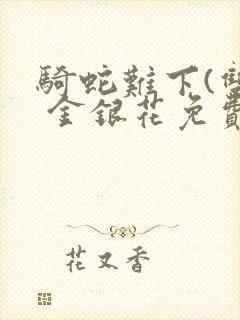 騎蛇難下(雙
金銀花免費
花又香